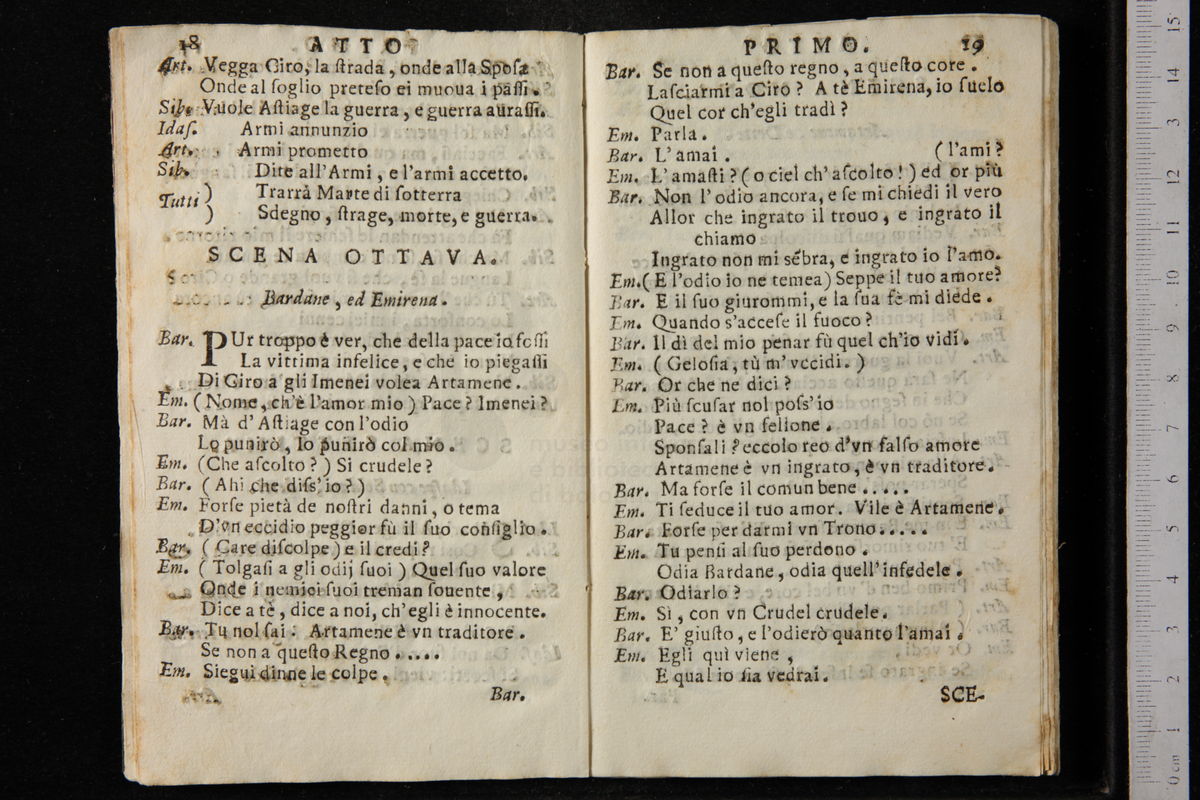 18 ATTO
Art. Vegga Ciro, la ſtrada, onde alla Spoſa
Onde al ſoglio preteſo ei muoua i paſſi.
Sib. Vuole Aſtiage la guerra, e guerra auraſſi.
Idaſ. Armi annunzio
Art. Armi prometto
Sib. Dite all'Armi, e l'armi accetto.
Tutti ) Trarrà Marte di ſotterra
) Sdegno, ſtrage, morte, e guerra.
SCENA OTTAVA.
Bardane, ed Emirena.
Bar. PUr troppo è ver, che della pace io foſſi
La vittima infelice, e che io piegaſſi
Di Ciro a gli Imenei volea Artamene.
Em. (Nome, ch'è l'amor mio) Pace? Imenei?
Bar. Mà d'Aſtiage con l'odio
Lo punirò, lo punirò col mio.
Em. (Che aſcolto?) Si crudele?
Bar. (Ahi che diſs'io?)
Em. Forſe pietà de noſtri danni, o tema
D'vn eccidio peggior fù il ſuo conſiglio.
Bar. (Care diſcolpe) e il credi?
Em. (Tolgaſi a gli odij ſuoi) Quel ſuo valore
Onde i nemici ſuoi treman ſouente,
Dice a tè, dice a noi, ch'egli è innocente.
Bar. Tu nol ſai: Artamene è vn traditore.
Se non a queſto Regno.....
Em. Siegui dinne le colpe.
Bar.
PRIMO. 19
Bar. Se non a queſto regno, a queſto core.
Laſciarmi a Ciro? A tè Emirena, io ſuelo
Quel cor ch'egli tradì?
Em. Parla.
Bar. L'amai. (l'ami?
Em. L'amaſti? (o ciel ch'aſcolto!) ed or più
Bar. Non l'odio ancora, e ſe mi chiedi il vero
Allor che ingrato il trouo, e ingrato il
chiamo
Ingrato non mi sébra, e ingrato io l'amo.
Em. (E l'odio io ne temea) Seppe il tuo amore?
Bar. E il ſuo giurommi, e la ſua fè mi diede.
Em. Quando s'acceſe il fuoco?
Bar. Il dì del mio penar fù quel ch'io vidi.
Em. (Geloſia, tù m'vccidi.)
Bar. Or che ne dici?
Em. Più ſcuſar nol poſs'io
Pace? è vn fellone.
Sponſali? eccolo reo d'vn falſo amore
Artamene è vn ingrato, è vn traditore.
Bar. Ma forſe il comun bene.....
Em. Ti ſeduce il tuo amor. Vile è Artamene.
Bar. Forſe per darmi vn Trono.....
Em. Tu penſi al ſuo perdono.
Odia Bardane, odia quell'infedele.
Bar. Odiarlo?
Em. Sì, con vn Crudel crudele.
Bar. E' giuſto, e l'odierò quanto l'amai.
Em. Egli quì viene,
E qual io ſia vedrai.
SCE-